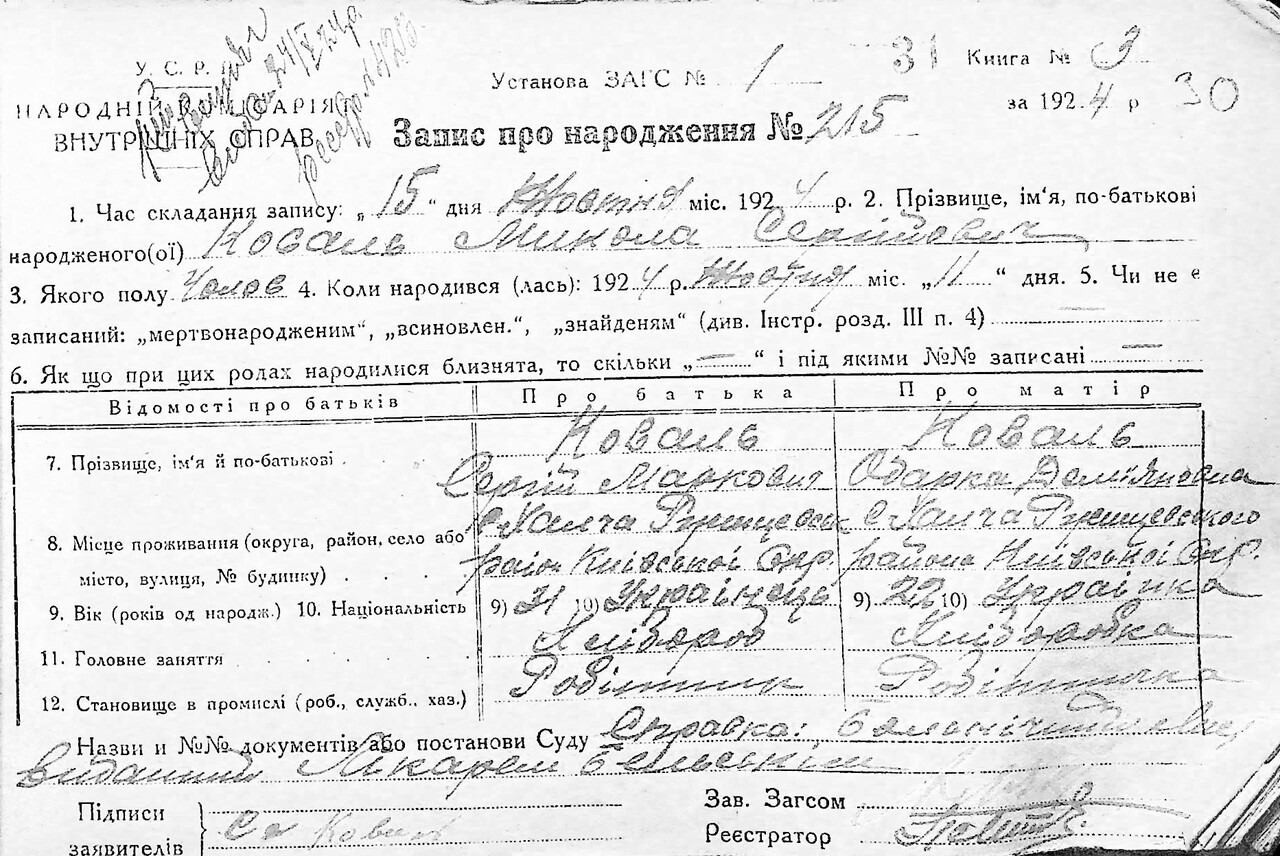 У. С. Р.
Установа ЗАГС № 1
31
Книга № 3
НАРОДНІЙ КОМІСАРІЯТ
за 1924 р
30
ВНУТРІШНІХ СПРАВ
Запис про народження № 215
1. Час складання запису: „15“ дня Жовтня міс. 1924 р. 2. Прізвище, ім'я, по-батькові
народженого(ої) Коваль Микола Сергійович
3. Якого полу Чолов 4. Коли народився (лась): 1924 р. Жовтня міс. „11“ дня. 5. Чи не є
записаний: „мертвонародженим“, „всиновлен.“, „знайденям“ (див. Інстр. розд. III п. 4)
6. Як що при цих родах народилися близнята, то скільки „—“ і під якими №№ записані —
Відомості про батьків
Про батька
Про матір
7. Прізвище, ім'я й по-батькові
Коваль
Сергій Маркович
Коваль
Одарка Дем'яновна
8. Місце проживання (округа, район, село або
місто, вулиця, № будинку)
с Халча Ржищевськ
район Київської Окр.
с Халча Ржищевського
района Київської Окр.
9. Вік (років од народж.) 10. Національність
9) 21 10) Українець
9) 22 10) Українка
11. Головне заняття
Хлібороб
Хліборобка
12. Становище в промислі (роб., служб., хаз.)
Робітник
Робітничка
Назви и №№ документів або постанови Суду Справка:
виданний Лікарем
Підписи
заявителів
Коваль
Зав. Загсом
Реєстратор